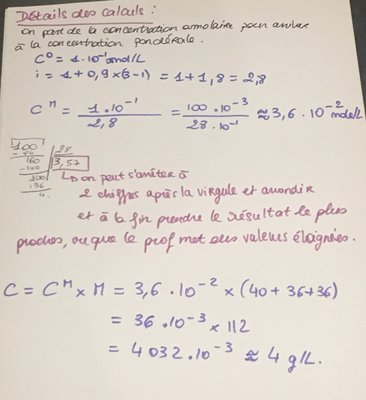 Détails des calculs :
on part de la concentration osmolaire pour arriver
à la concentration pondérale.
C° = 1.10⁻¹ osmol/L
i = 1 + 0,9 x (3-1) = 1 + 1,8 = 2,8
Cᴹ = 1.10⁻¹ / 2,8 = 100.10⁻³ / 28.10⁻¹ ≈ 3,6.10⁻² mole/L
100 | 28
- 84 | 3,57
160
-140
200
196
4
↳ on peut s'arrêter à
2 chiffres après la virgule et arrondir
et à la fin prendre le résultat le plus
proches, vu que le prof met des valeurs éloignées.
C = Cᴹ x M = 3,6.10⁻² x (40+36+36)
= 36.10⁻³ x 112
= 4032.10⁻³ ≈ 4 g/L.